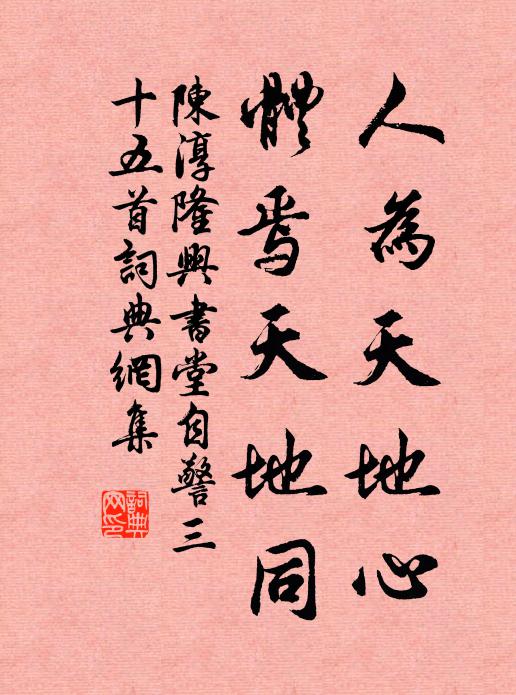 人為天地心
體焉天地同
陳淳隆興書堂自警三
十五首詞典網集
詞典
网印